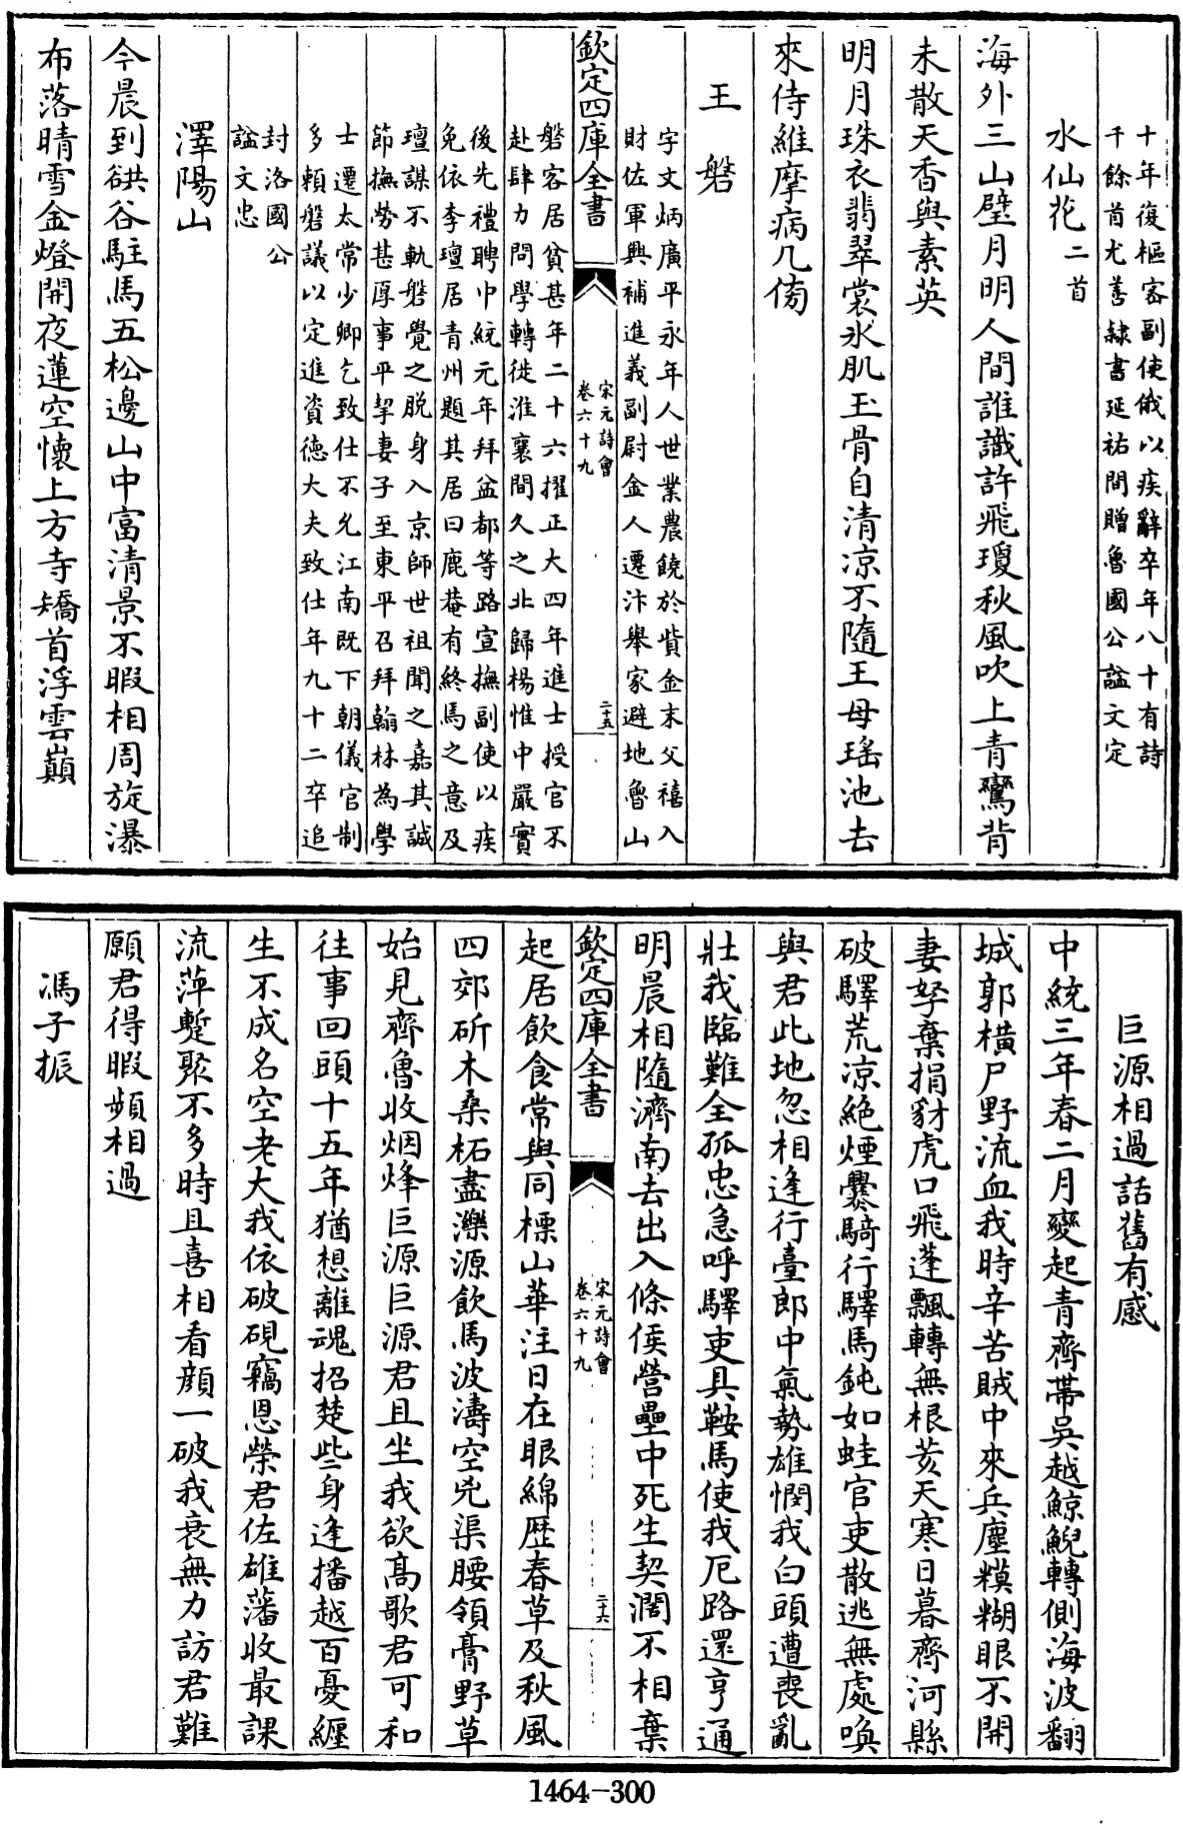 十年復樞密副使俄以疾辭卒年八十有詩
千餘首尤善隸書延祐間贈魯國公諡文定
水仙花二首
海外三山璧月明人間誰識許飛瓊秋風吹上青鸞背
未散天香與素英
明月珠衣翡翠裳氷肌玉骨自清凉不隨王母瑶池去
來侍維摩病几傍
王磐
字文炳廣平永年人世業農饒於貲金末父禧入
財佐軍興補進義副尉金人遷汴舉家避地魯山
欽定四庫全書
宋元詩會
卷六十九
二十五
磐客居貧甚年二十六擢正大四年進士授官不
赴肆力問學轉徙淮襄間久之北歸楊惟中嚴實
後先禮聘中統元年拜益都等路宣撫副使以疾
免依李璮居青州題其居曰鹿菴有終焉之意及
璮謀不軌磐覺之脱身入京師世祖聞之嘉其誠
節撫勞甚厚事平挈妻子至東平召拜翰林為學
士遷太常少卿乞致仕不允江南既下朝儀官制
多賴磐議以定進資德大夫致仕年九十二卒追
封洛國公
諡文忠
澤陽山
今晨到谼谷駐馬五松邊山中富清景不暇相周旋瀑
布落晴雪金燈開夜蓮空懷上方寺矯首浮雲巔
巨源相過話舊有感
中統三年春二月變起青齊帶吳越鯨鯢轉側海波翻
城郭橫尸野流血我時辛苦賊中來兵塵糢糊眼不開
妻孥棄捐豺虎口飛蓬飄轉無根荄天寒日暮齊河縣
破驛荒凉絶煙爨騎行驛馬鈍如蛙官吏散逃無處喚
與君此地忽相逢行臺郎中氣勢雄憫我白頭遭喪亂
壯我臨難全孤忠急呼驛吏具鞍馬使我厄路還亨通
明晨相隨濟南去出入條侯營壘中死生契濶不相棄
欽定四庫全書
宋元詩會
卷六十九
二十六
起居飲食常與同標山華注日在眼綿歴春草及秋風
四郊斫木桑柘盡濼源飲馬波濤空兇渠腰領膏野草
始見齊魯收烟烽巨源巨源君且坐我欲高歌君可和
往事回頭十五年猶想離魂招楚些身逢播越百憂纏
生不成名空老大我依破硯竊恩榮君佐雄藩收最課
流萍蹔聚不多時且喜相看顔一破我衰無力訪君難
願君得暇頻相過
馮子振
1464-300